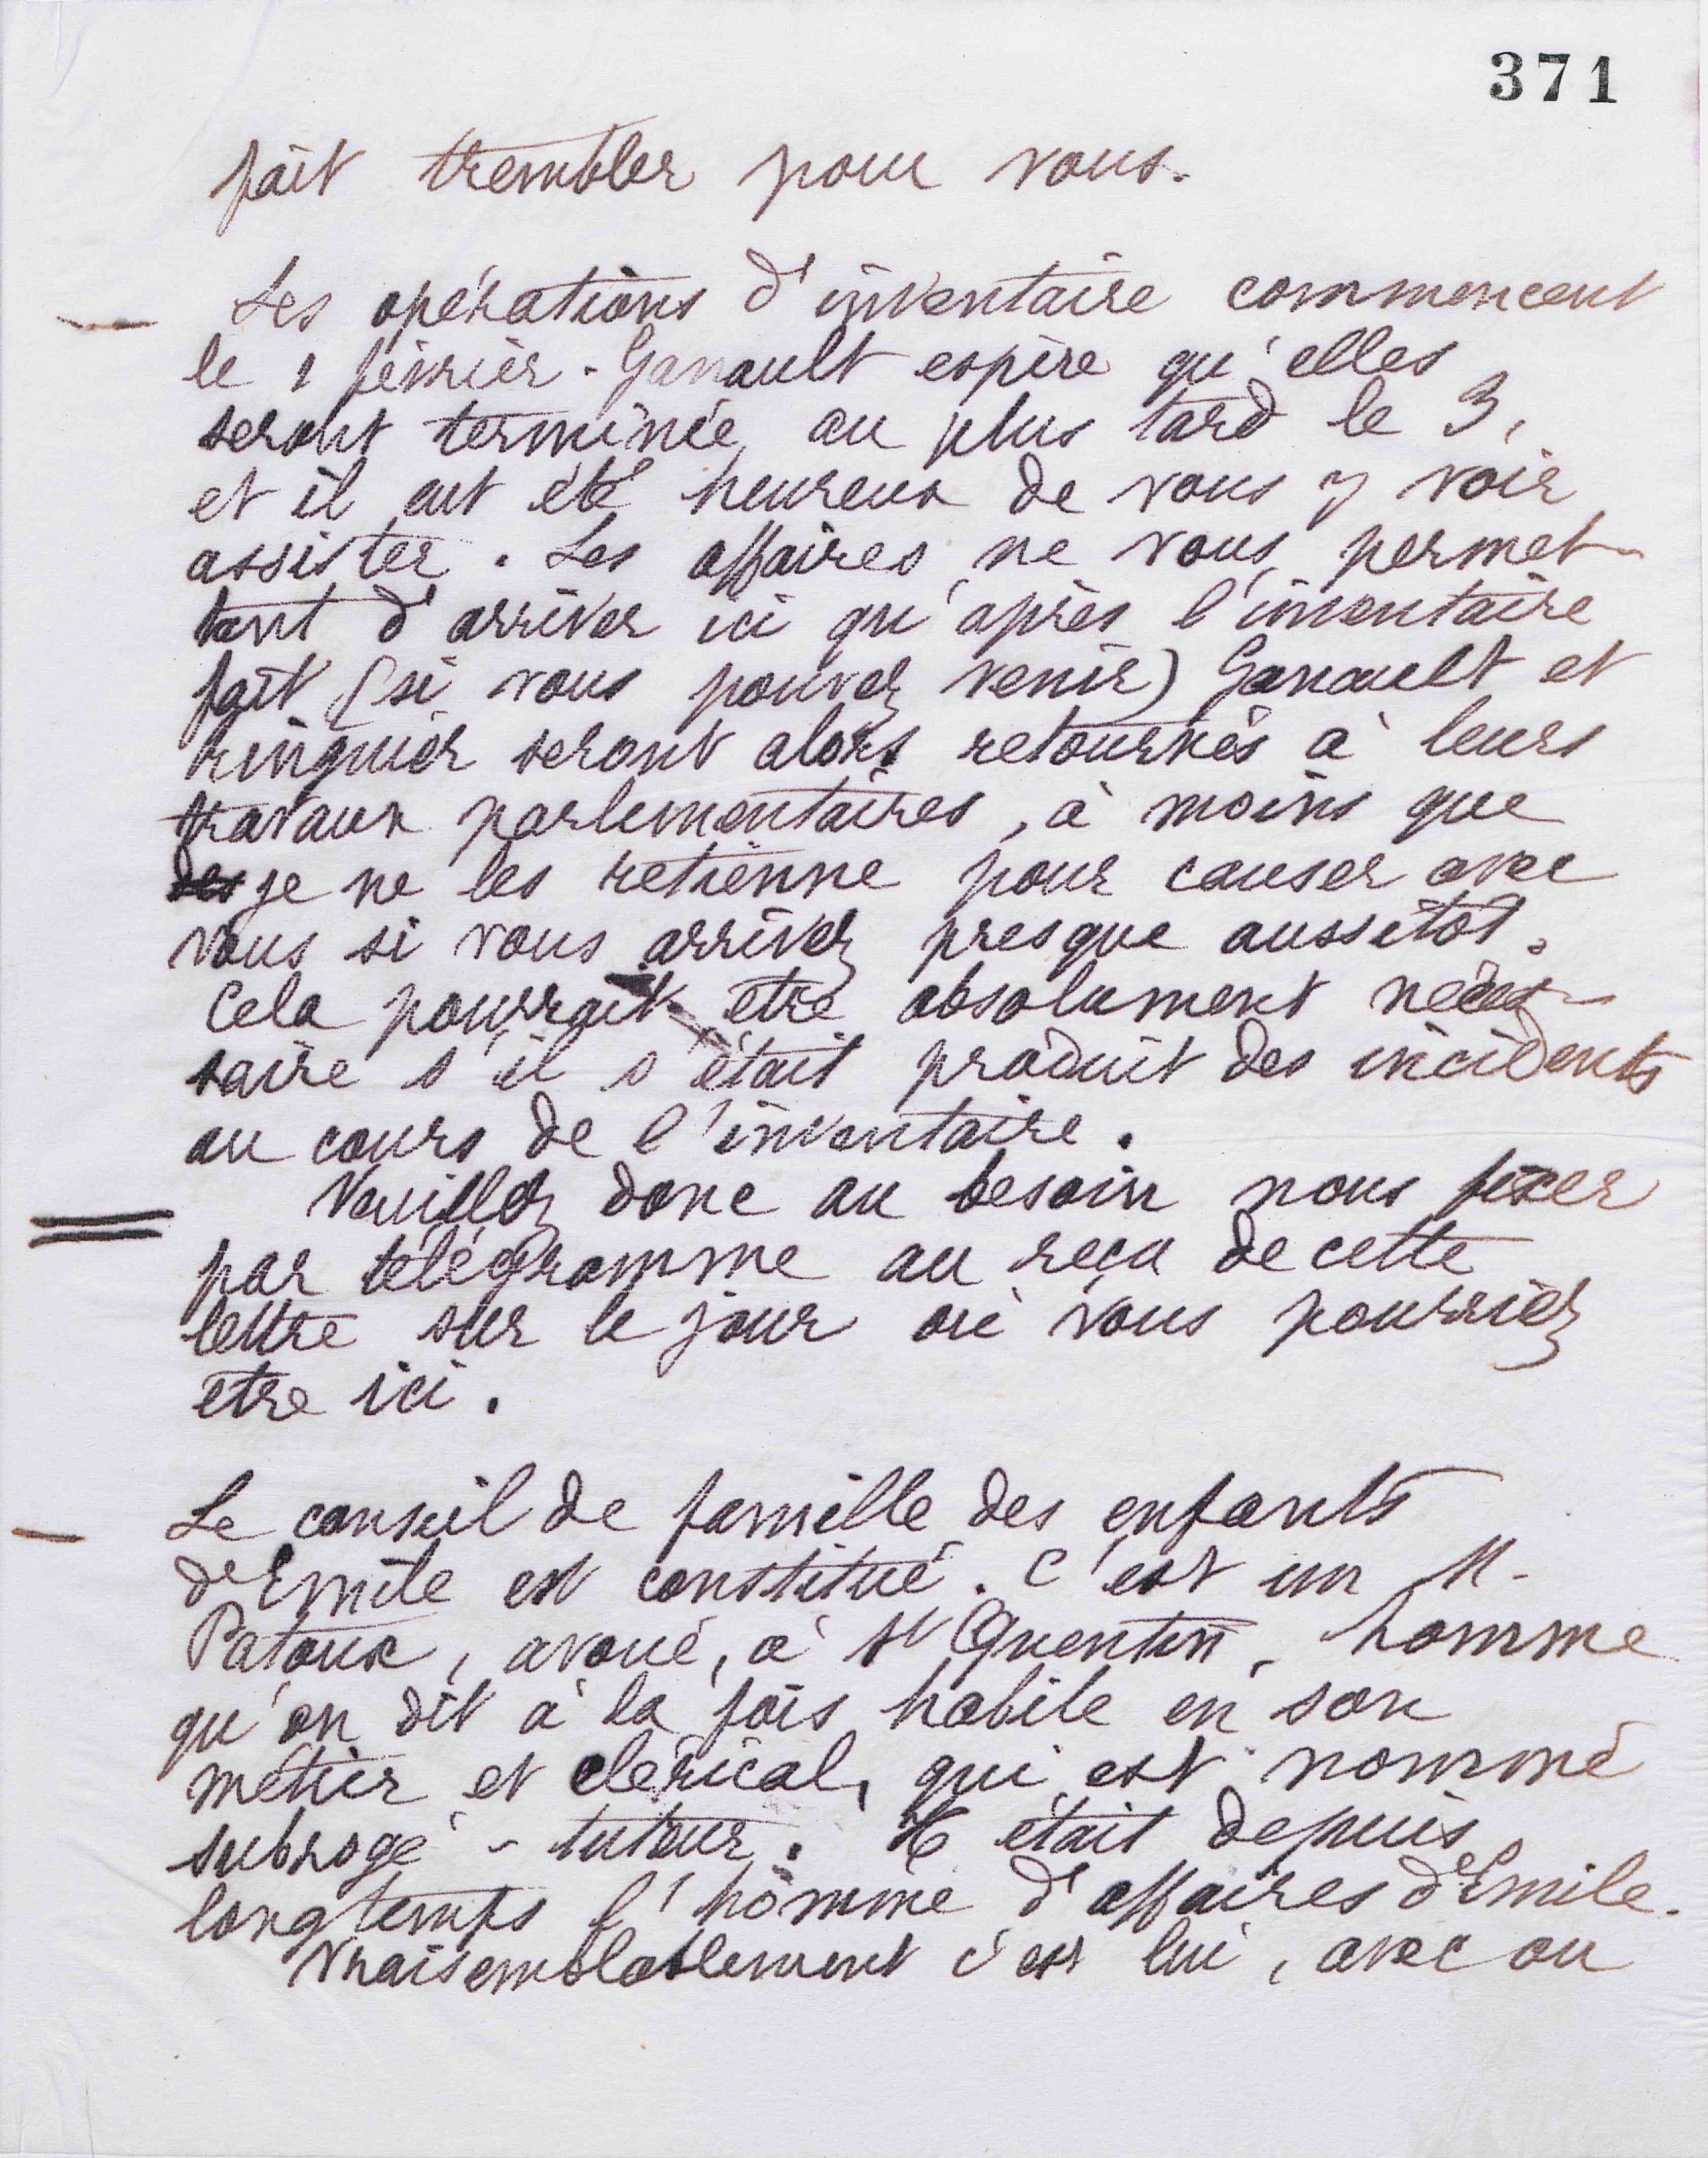 371
fait trembler pour vous.
Les opérations d'inventaire commencent
le 1 février. Ganault espère qu'elles
seront terminée au plus tard le 3,
et il eut été heureux de vous y voir
assister. Les affaires ne vous permet-
tant d'arriver ici qu'après l'inventaire
fait (si vous pouvez venir) Ganault et
Ringuier seront alors retournés à leurs
travaux parlementaires, à moins que
des je ne les retienne pour causer avec
vous si vous arrivez presque aussitot.
Cela pourrait etre absolument néces-
saire s'il s'était produit des incidents
au cours de l'inventaire.
Veuillez donc au besoin nous fixer
par télégramme au reçu de cette
lettre sur le jour où vous pourriez
etre ici.
Le conseil de famille des enfants
d'Emile est constitué. C'est un M.
Patoux, avoué, à St Quentin, homme
qu'on dit à la fois habile en son
métier et clérical, qui est nommé
subrogé-tuteur. Il était depuis
longtemps l'homme d'affaires d'Emile.
Vraisemblablement c'est lui, avec ou